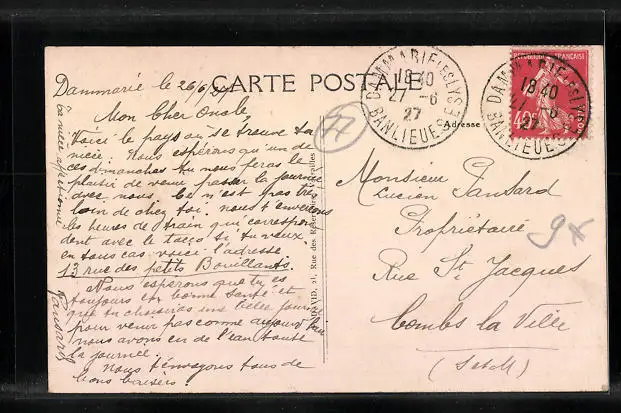 CARTE POSTALE
Dammarie le 26/6/27
Mon Cher Oncle,
Voici le pays ou se trouve ta
nièce. Nous espérons qu'un de
ces dimanches tu nous feras le
plaisir de venir passer la journée
avec nous. Ce n'est pas très
loin de chez toi. nous t'enverrons
les heures de train qui correspon
dent avec le tacco si tu veux.
en tous cas voici l'adresse
13 rue des petits Bouillants.
Nous espérons que tu es
toujours en bonne santé et
que tu choisiras une belle journée
pour venir pas comme aujourd'hui
nous avons eu de l'eau toute
la journée.
nous t'envoyons tous de
bons baisers.
Ta nièce affectionnée
Pansard
DAMMARIE-LES-LYS
18 40
27 -6
27
BANLIEUE
Adresse
RÉPUBLIQUE FRANÇAISE
40c
DAMMARIE-LES-LYS
18 40
27 -6
27
BANLIEUE
77
Monsieur
Lucien Pansard
Propriétaire
Rue St Jacques
Combs la Ville
(S et M)
21, Rue des Réservoirs, Versailles